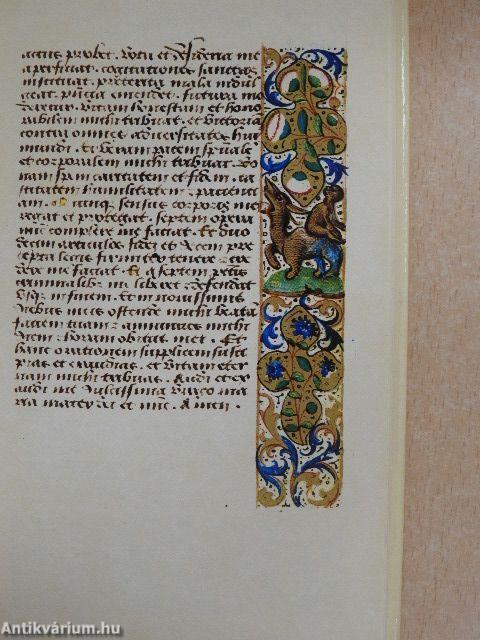 actus probet. Vota et desideria me
a perficiat. cogitationes sanctas
instituat. preterita mala indul
geat. pñcia emendet. futura mo
deretur. Vitam honestam et hono
rabilem michi tribuat. et victoria
contra omnes adversitates hui
mundi. Et veram pacem spũale
et corporalem michi tribuat. Bo
nam spm caritatem et fidem. ca
stitatem humilitatem et pacienci
am. Et quinqz sensus corporis mei
regat et protegat. septem opera
mie complere me faciat. Et duo
decim articulos fidei et decem pre
cepta legis firmiter tenere et cre
dere me faciat. Et a septem pctis
criminalibz me liberet et defendat
usqz in finem. Et in novissimis
diebus meis ostende michi beatã
faciem tuam et annuncies michi
diem et horam obitus mei. Et
hanc orationem supplicem susci
pias et exaudias. et vitam eter
nam michi tribuas. Audi et ex
audi me dulcissima virgo ma
ria mater dei et mie. Amen.
Antikvárium.hu